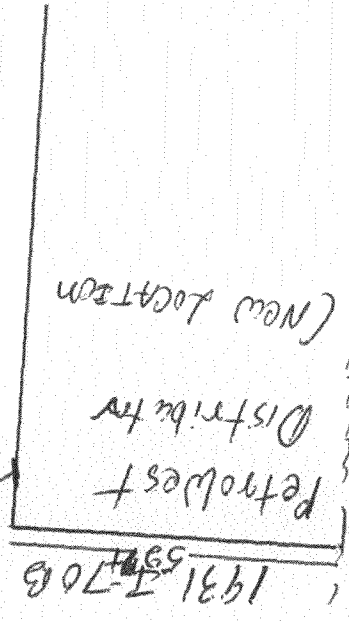 1931 I-70B
PetroWest
Distributor
(New Location